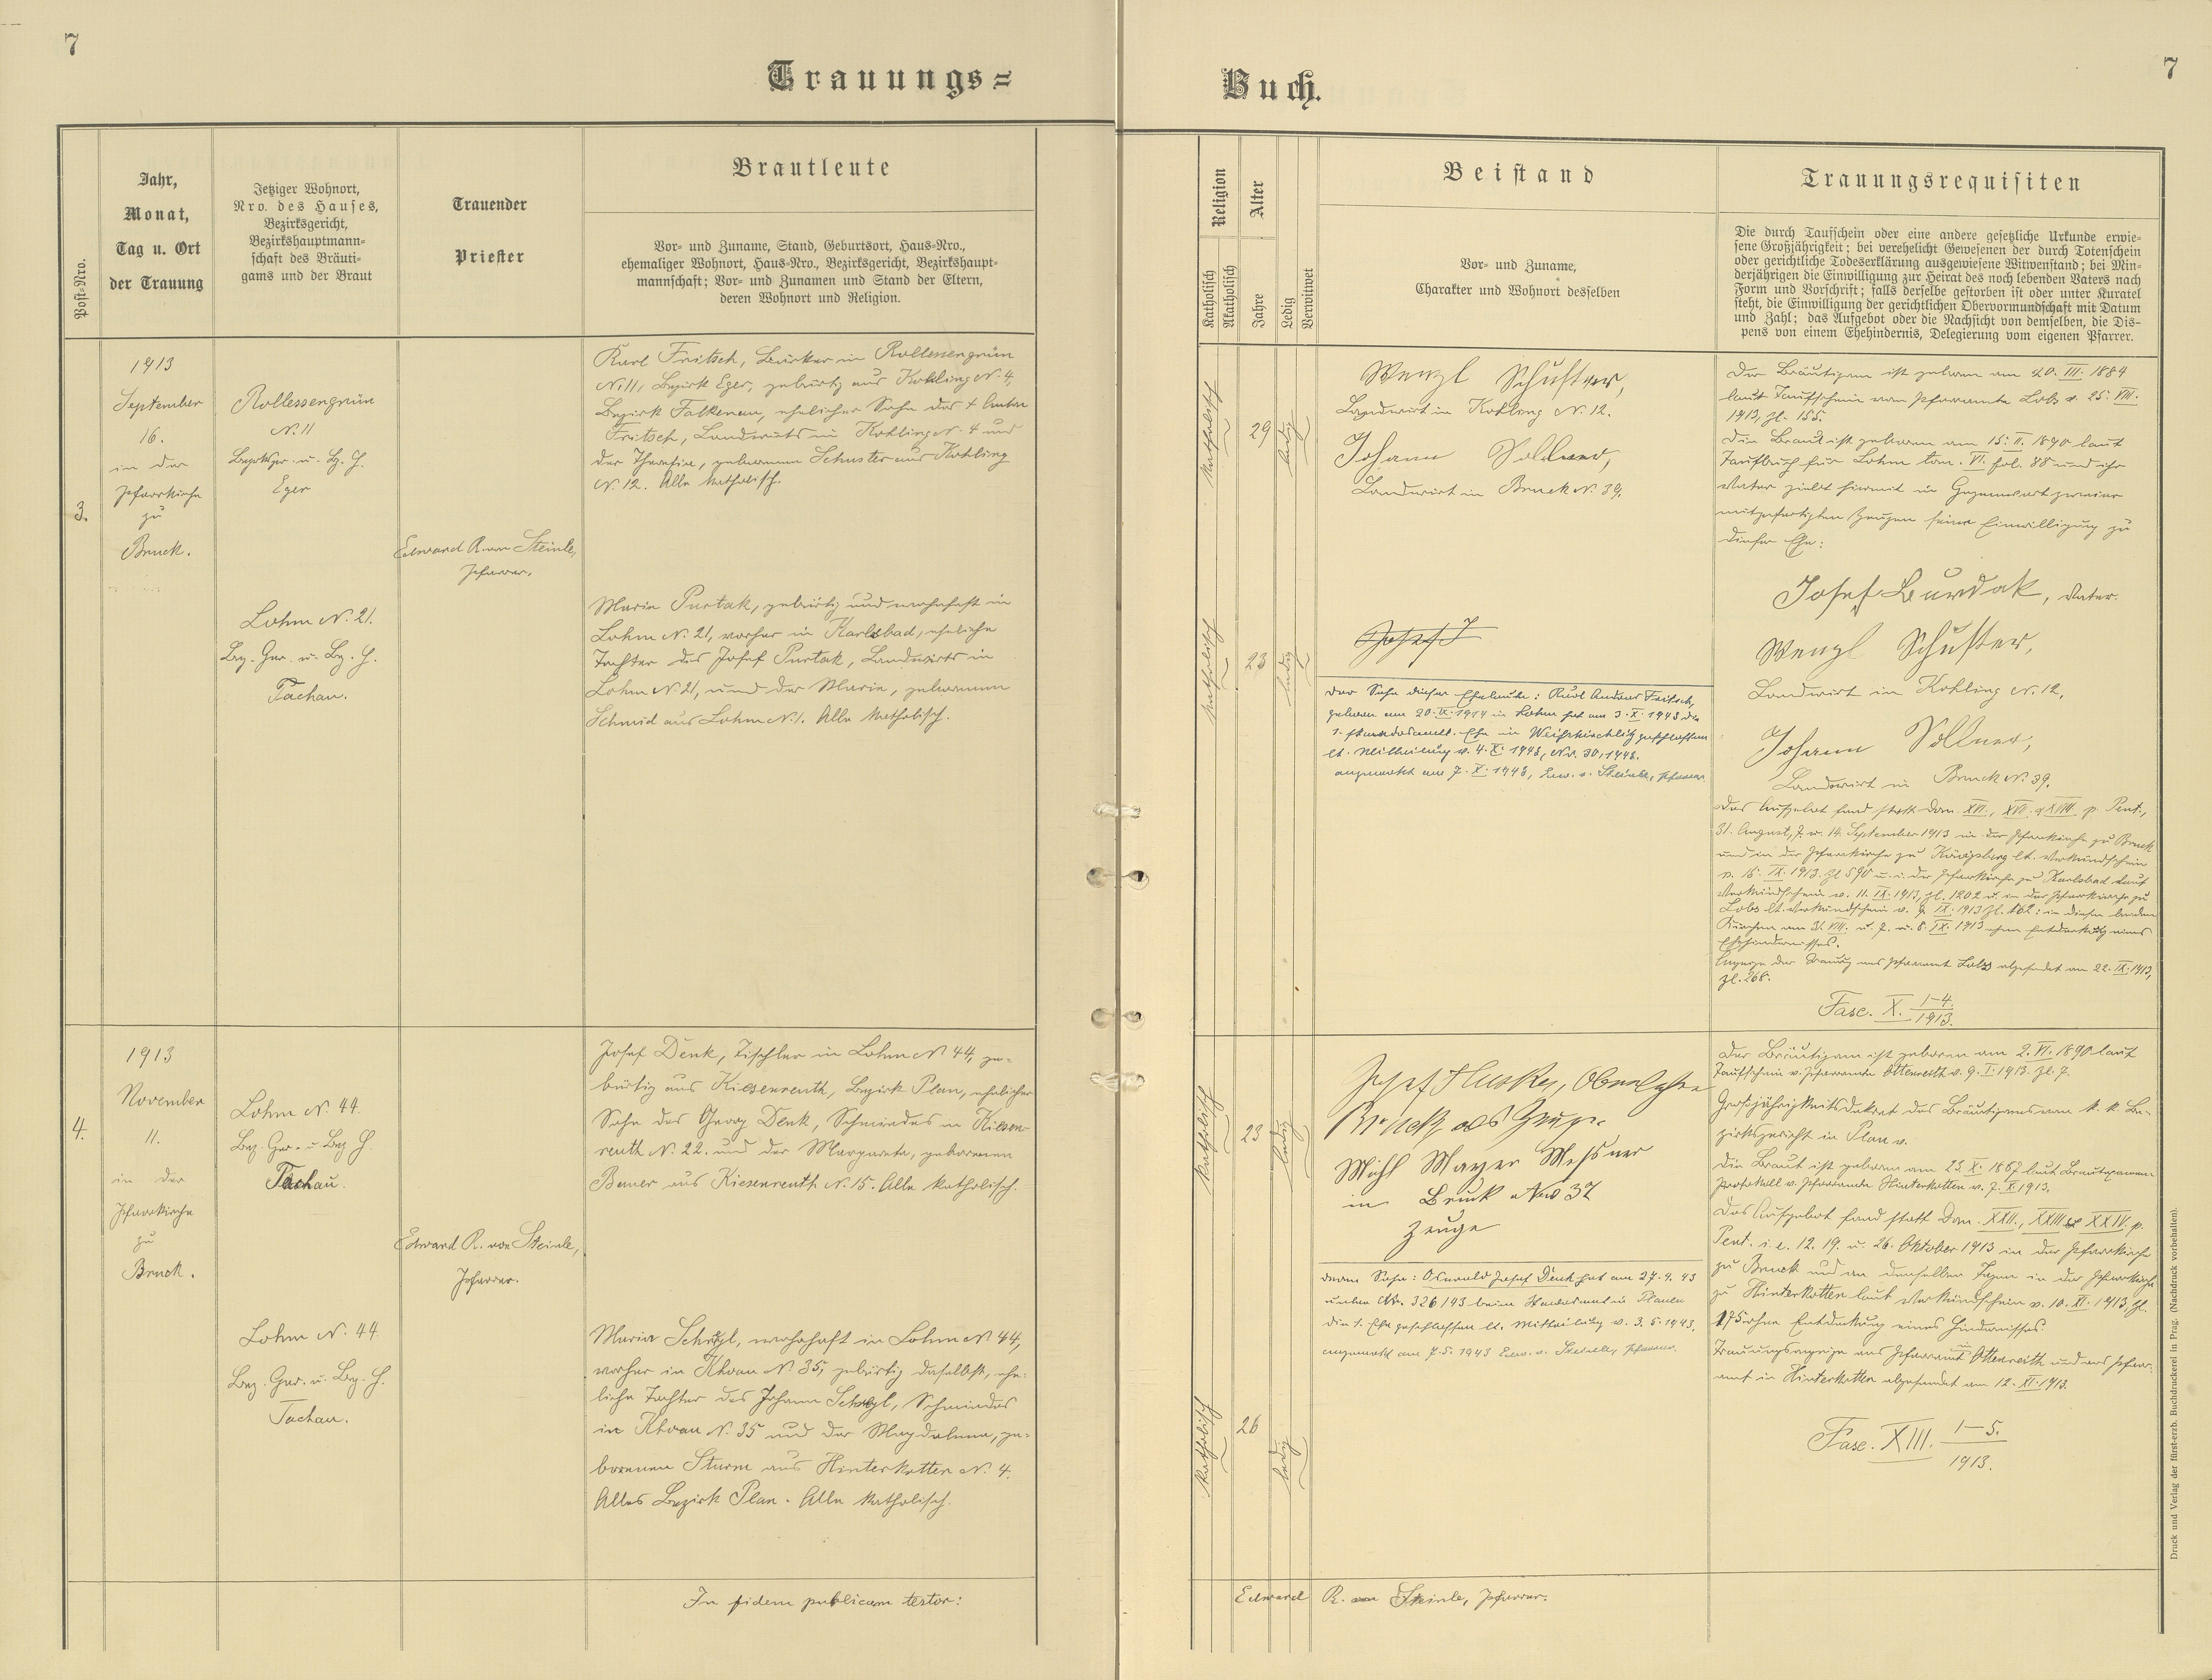 7
Trauungs=
Post=Nro.
Jahr,
Monat,
Tag u. Ort
der Trauung
Jetziger Wohnort,
Nro. des Hauses,
Bezirksgericht,
Bezirkshauptmann=
schaft des Bräuti=
gams und der Braut
Trauender
Priester
Brautleute
Vor= und Zuname, Stand, Geburtsort, Haus=Nro.,
ehemaliger Wohnort, Haus=Nro., Bezirksgericht, Bezirkshaupt=
mannschaft; Vor= und Zunamen und Stand der Eltern,
deren Wohnort und Religion.
3.
1913
September
16.
in der
Pfarrkirche
zu
Bruck.
Rollessengrün
N. 11
Bezirksger. u. Bz. H.
Eger
Lohm N. 21.
Bez. Ger. u. Bz. H.
Tachau.
Edward R. von Steinle,
Pfarrer.
Karl Fritsch, Bäcker in Rollessengrün
N. 11, Bezirk Eger, gebürtig aus Kohling N. 4,
Bezirk Falkenau, ehelicher Sohn des † Anton
Fritsch, Landwirts in Kohling N. 4 und
der Theresia, geborenen Schuster aus Kohling
N. 12. Alle katholisch.
Marie Purtak, gebürtig und wohnhaft in
Lohm N. 21, vorher in Karlsbad, eheliche
Tochter des Josef Purtak, Landwirts in
Lohm N. 21, und der Marie, geborenen
Schmid aus Lohm N. 1. Alle katholisch.
4.
1913
November
11.
in der
Pfarrkirche
zu
Bruck.
Lohm N. 44.
Bez. Ger. u. Bez. H.
Tachau.
Lohm N. 44.
Bez. Ger. u. Bez. H.
Tachau.
Edward R. von Steinle,
Pfarrer.
Josef Denk, Tischler in Lohm N. 44, ge=
bürtig aus Kiesenreuth, Bezirk Plan, ehelicher
Sohn des Georg Denk, Schmiedes in Kiesen=
reuth N. 22. und der Margareta, geborenen
Bauer aus Kiesenreuth N. 15. Alle katholisch.
Maria wohnhaft in Lohm N. 44,
vorher in Khoau N. 35, gebürtig daselbst, ehe=
liche Tochter des Johann Schmiedes
in Khoau N. 35 und der Magdalena, ge=
borenen Sturm aus Hinterkotten N. 4.
Alles Bezirk Plan. Alle katholisch.
In fidem publicam testor:
7
Buch.
Religion
Katholisch
Akatholisch
Alter
Jahre
Ledig
Verwitwet
Beistand
Vor= und Zuname,
Charakter und Wohnort desselben
Trauungsrequisiten
Die durch Taufschein oder eine andere gesetzliche Urkunde erwie=
sene Großjährigkeit; bei verehelicht Gewesenen der durch Totenschein
oder gerichtliche Todeserklärung ausgewiesene Witwenstand; bei Min=
derjährigen die Einwilligung zur Heirat des noch lebenden Vaters nach
Form und Vorschrift; falls derselbe gestorben ist oder unter Kuratel
steht, die Einwilligung der gerichtlichen Obervormundschaft mit Datum
und Zahl; das Aufgebot oder die Nachsicht von demselben, die Dis=
pens von einem Ehehindernis, Delegierung vom eigenen Pfarrer.
katholisch
29
ledig
katholisch
23
ledig
Wenzl Schuster,
Landwirt in Kohling N. 12.
Johann Söllner,
Landwirt in Bruck N. 39.
Josef J
Der Sohn dieser Eheleute: Karl Fritsch,
geboren am 20. IX. 1914 in Lohm hat am 3. X. 1943 die
1. standesamtl. Ehe in Weißkirchlitz geschlossen
lt. Mitteilung v. 4. X. 1943, Nr. 30, 1943.
angemerkt am 7. X. 1943, Edw. v. Steinle, Pfarrer
Der Bräutigam ist geboren am 20. III. 1884
laut Taufschein vom Pfarramte Lobs v. 25. VIII.
1913, Zl. 155.
Die Braut ist geboren am 15. II. 1890 laut
Taufbuch für Lohm tom. VI. fol. 88 und ihr
Vater gibt hiermit in Gegenwart zweier
mitgefertigten Zeugen seine Einwilligung zu
dieser Ehe:
Josef Burdak, Vater.
Wenzl Schuster,
Landwirt in Kohling N. 12,
Johann Söllner,
Landwirt in Bruck N. 39.
Das Aufgebot fand statt Dom. XVI., XVII. & XVIII. p. Pent.,
31. August, 7. u. 14. September 1913 in der Pfarrkirche zu Bruck
und in der Pfarrkirche zu Königsberg lt. Verkündschein
v. 15. IX. 1913. Zl 590 u. in der Pfarrkirche zu Karlsbad laut
Verkündschein v. 11. IX. 1913, Zl. 1202 u. in der Pfarrkirche zu
Lobs lt. Verkündschein v. 9. IX. 1913 Zl. 162: in diesen beiden
Kirchen am 31. VIII. u. 7. u. 8. IX. 1913 ohne Entdeckung eines
Ehehindernisses.
Anzeige der Trauung ans Pfarramt Lobs abgesendet am 22. IX. 1913,
Zl. 268.
Fasc. X. 1-4.
1913.
katholisch
23
ledig
katholisch
26
ledig
Josef Oberlehrer
Bruck als Zeuge
Michl Mayer Messner
in Bruck Nro 37
Zeuge
deren Sohn: Oswald Josef Denk hat am 27. 4. 43
unter Nr. 326/43 beim Standesamt in Plauen
die 1. Ehe geschlossen lt. Mitteilung v. 3. 5. 1943.
angemerkt am 7. 5. 1943 Edw. v. Steinle, Pfarrer.
Der Bräutigam ist geboren am 2. VI. 1890 laut
Taufschein v. Pfarramte Ottenreith v. 9. I. 1913. Zl. 7.
Großjährigkeitsdekret des Bräutigams vom k. k. Be=
zirksgericht in Plan v.
Die Braut ist geboren am 23. X. 1887 laut Brautexamen=
Protokoll v. Pfarramte Hinterkotten v. 7. X. 1913.
Das Aufgebot fand statt Dom. XXII., XXIII. & XXIV. p.
Pent. i. e. 12. 19. u. 26. Oktober 1913 in der Pfarrkirche
zu Bruck und an denselben Tagen in der Pfarrkirche
zu Hinterkotten laut Verkündschein v. 10. XI. 1913, Zl.
175 ohne Entdeckung eines Hindernisses.
Trauungsanzeige ans Pfarramt in Ottenreith und ans Pfarr=
amt in Hinterkotten abgesendet am 12. XI. 1913.
Fasc. XIII. 1-5.
1913.
Edward R. von Steinle, Pfarrer.
Druck und Verlag der fürst-erzb. Buchdruckerei in Prag. (Nachdruck vorbehalten).